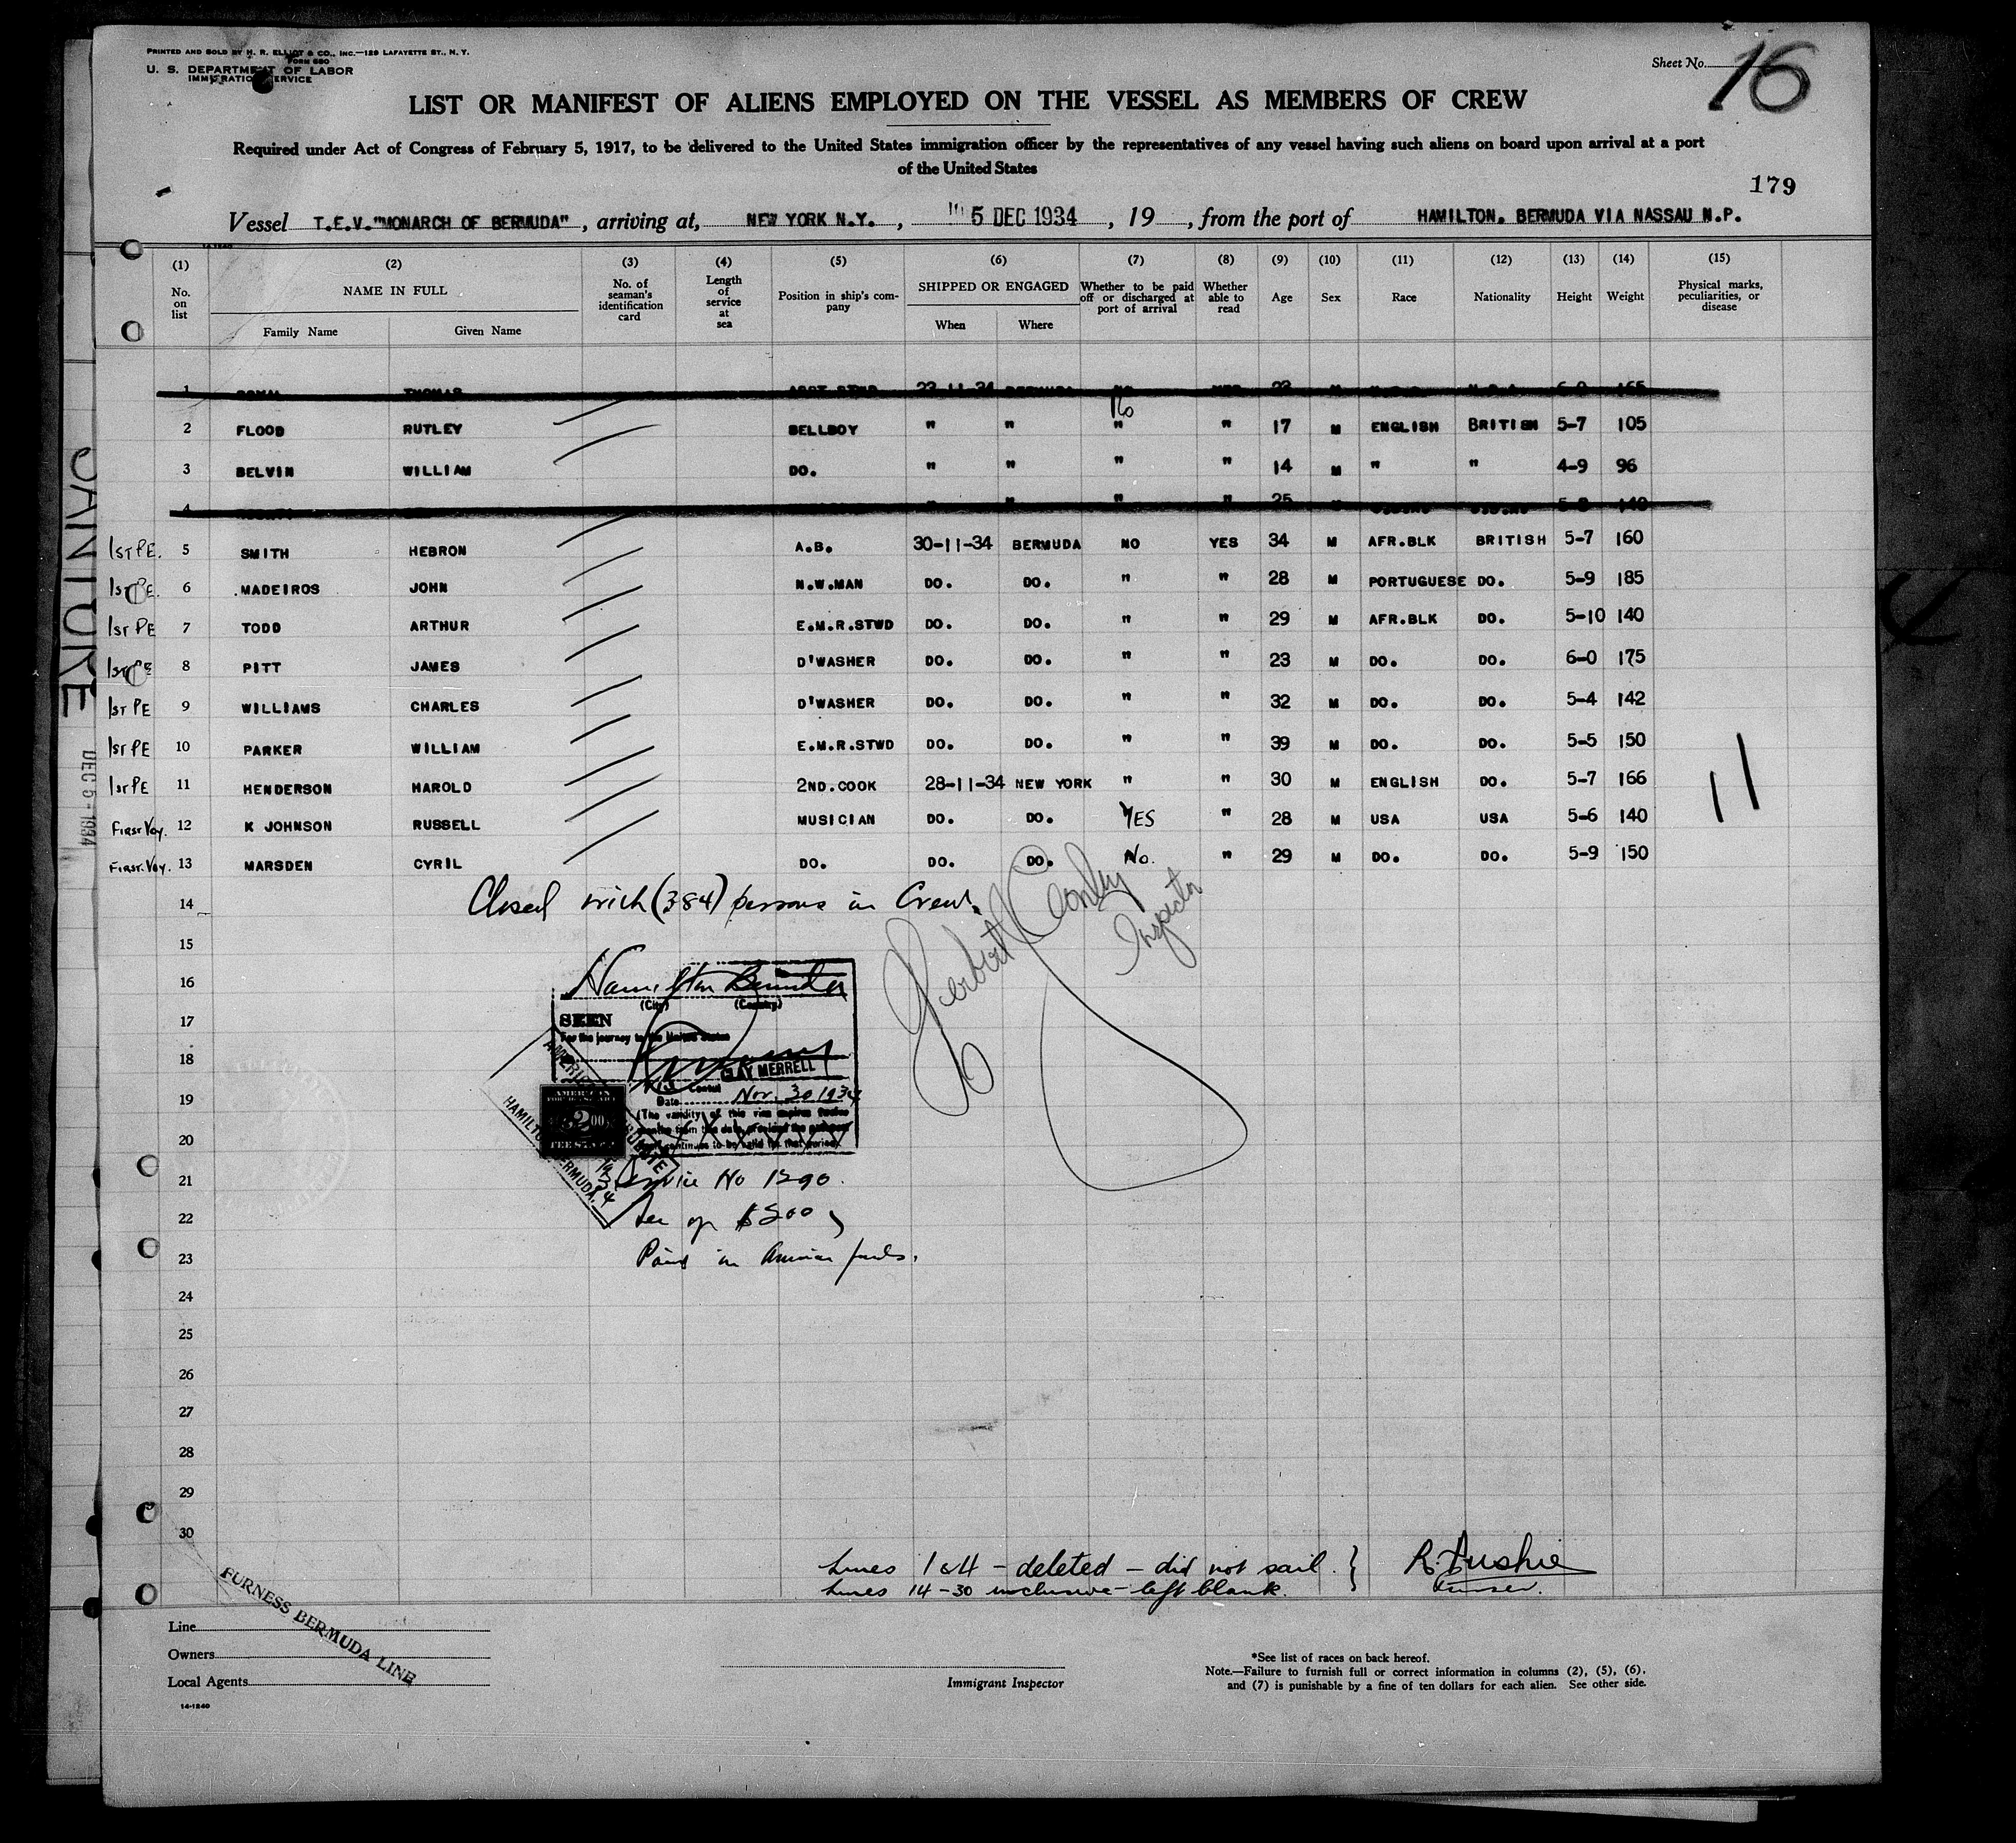 PRINTED AND SOLD BY H. R. ELLIOT & CO., INC.—129 LAFAYETTE ST., N. Y.
FORM 680
U. S. DEPARTMENT OF LABOR
IMMIGRATION SERVICE
Sheet No. 16
LIST OR MANIFEST OF ALIENS EMPLOYED ON THE VESSEL AS MEMBERS OF CREW
Required under Act of Congress of February 5, 1917, to be delivered to the United States immigration officer by the representatives of any vessel having such aliens on board upon arrival at a port
of the United States
179
Vessel T.E.V."MONARCH OF BERMUDA", arriving at, NEW YORK N.Y., 5 DEC 1934, 19 , from the port of HAMILTON. BERMUDA VIA NASSAU N.P.
14-1240
(1) (2) (3) (4) (5) (6) (7) (8) (9) (10) (11) (12) (13) (14) (15)
No. on list NAME IN FULL Family Name Given Name No. of seaman's identification card Length of service at sea Position in ship's company SHIPPED OR ENGAGED When Where Whether to be paid off or discharged at port of arrival Whether able to read Age Sex Race Nationality Height Weight Physical marks, peculiarities, or disease
1 THOMAS ASST STWD 23-11-34 BERMUDA NO YES 23 M 6-0 165
No
2 FLOOD RUTLEY BELLBOY " " " " 17 M ENGLISH BRITISH 5-7 105
3 BELVIN WILLIAM DO. " " " " 14 M " " 4-9 96
4 " " " " 25 140
1ST PE. 5 SMITH HEBRON A.B. 30-11-34 BERMUDA NO YES 34 M AFR.BLK BRITISH 5-7 160
1ST PE. 6 MADEIROS JOHN N.W.MAN DO. DO. " " 28 M PORTUGUESE DO. 5-9 185
1ST PE 7 TODD ARTHUR E.M.R.STWD DO. DO. " " 29 M AFR.BLK DO. 5-10 140
1ST PE 8 PITT JAMES D'WASHER DO. DO. " " 23 M DO. DO. 6-0 175
1ST PE 9 WILLIAMS CHARLES D'WASHER DO. DO. " " 32 M DO. DO. 5-4 142
1ST PE 10 PARKER WILLIAM E.M.R.STWD DO. DO. " " 39 M DO. DO. 5-5 150
1ST PE 11 HENDERSON HAROLD 2ND.COOK 28-11-34 NEW YORK " " 30 M ENGLISH DO. 5-7 166
FIRST VOY. 12 K JOHNSON RUSSELL MUSICIAN DO. DO. YES " 28 M USA USA 5-6 140
FIRST. VOY. 13 MARSDEN CYRIL DO. DO. DO. No. " 29 M DO. DO. 5-9 150
11
14
Closed with (384) persons in Crew.
Herbert Conley
Inspector
15
16
Hamilton Bermuda
(City) (Country)
17
SEEN
For the journey to the United States
18
CLAY MERRELL
Vice Consul
19
Date Nov. 30 1934
(The validity of this visa expires twelve
months from this date provided the passport
20
continues to be valid for that period)
AMERICAN
FOREIGN SERVICE
$2.00
FEE STAMP
AMERICAN CONSULATE
HAMILTON, BERMUDA.
21
Service No 1290.
22
Fee of $2.00
23
Paid in American funds.
24
25
26
27
28
29
30
Lines 1 & 4 – deleted – did not sail.
Lines 14-30 inclusive – left blank.
Purser.
DEC 5 - 1934
FURNESS BERMUDA LINE
Line
Owners
Local Agents
14-1240
Immigrant Inspector
*See list of races on back hereof.
Note.—Failure to furnish full or correct information in columns (2), (5), (6),
and (7) is punishable by a fine of ten dollars for each alien. See other side.